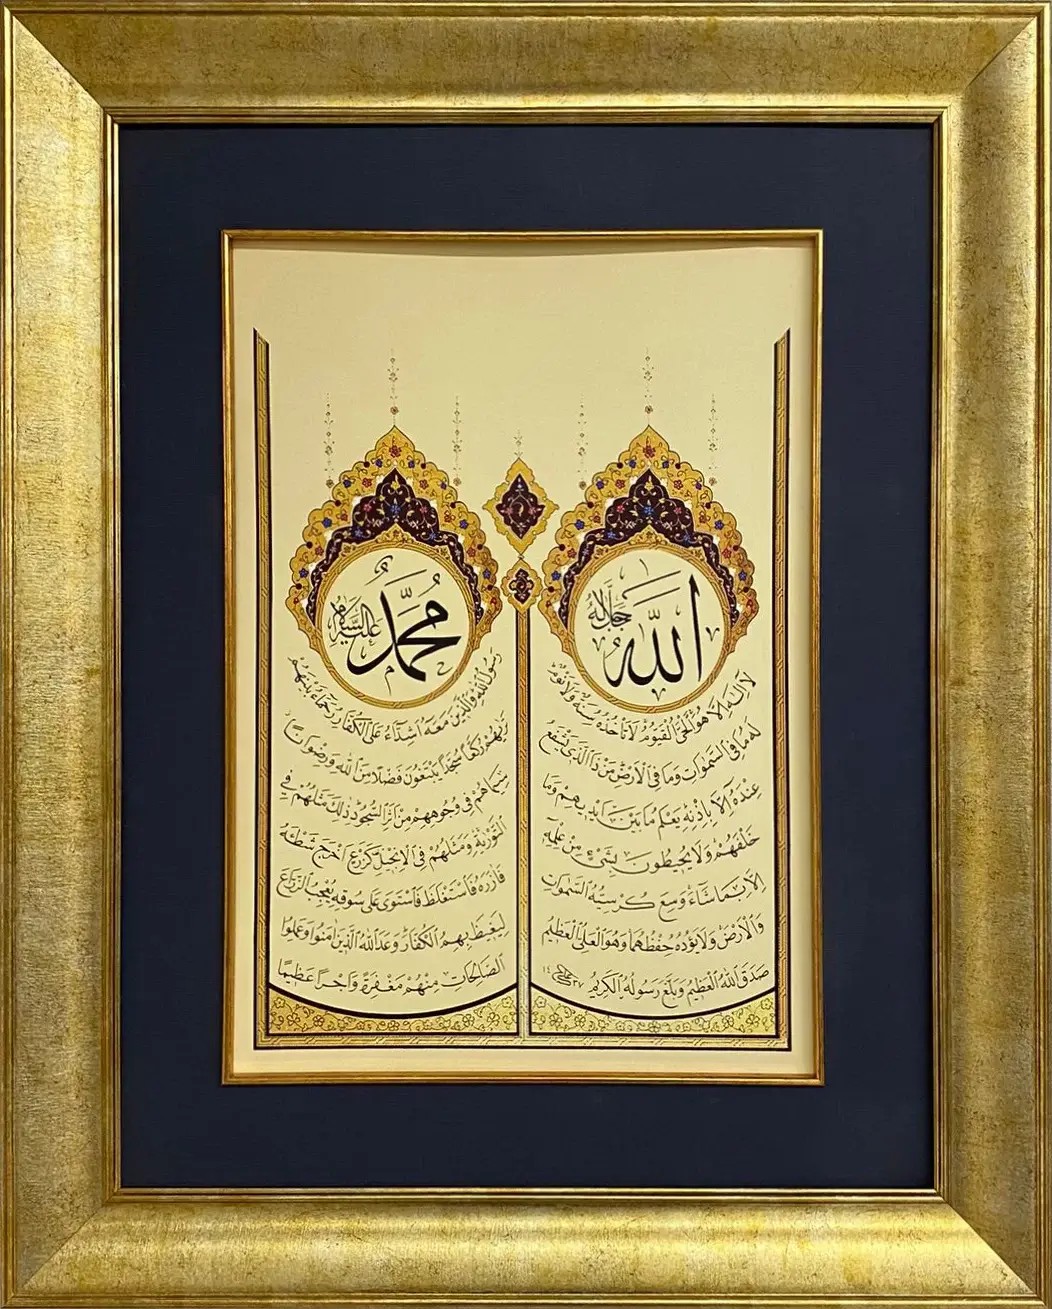 الله
جل جلاله
لا إله إلا هو الحي القيوم لا تأخذه سنة ولا نوم
له ما في السموات وما في الأرض من ذا الذي يشفع
عنده إلا بإذنه يعلم ما بين أيديهم وما
خلفهم ولا يحيطون بشيء من علمه
إلا بما شاء وسع كرسيه السموات
والأرض ولا يؤده حفظهما وهو العلي العظيم
صدق الله العظيم وبلغ رسوله الكريم
محمد
عليه السلام
رسول الله والذين معه أشداء على الكفار رحماء بينهم
تريهم ركعا سجدا يبتغون فضلا من الله ورضوانا
سيماهم في وجوههم من أثر السجود ذلك مثلهم في
التورية ومثلهم في الإنجيل كزرع أخرج شطئه
فآزره فاستغلظ فاستوى على سوقه يعجب الزراع
ليغيظ بهم الكفار وعد الله الذين آمنوا وعملوا
الصالحات منهم مغفرة وأجرا عظيما